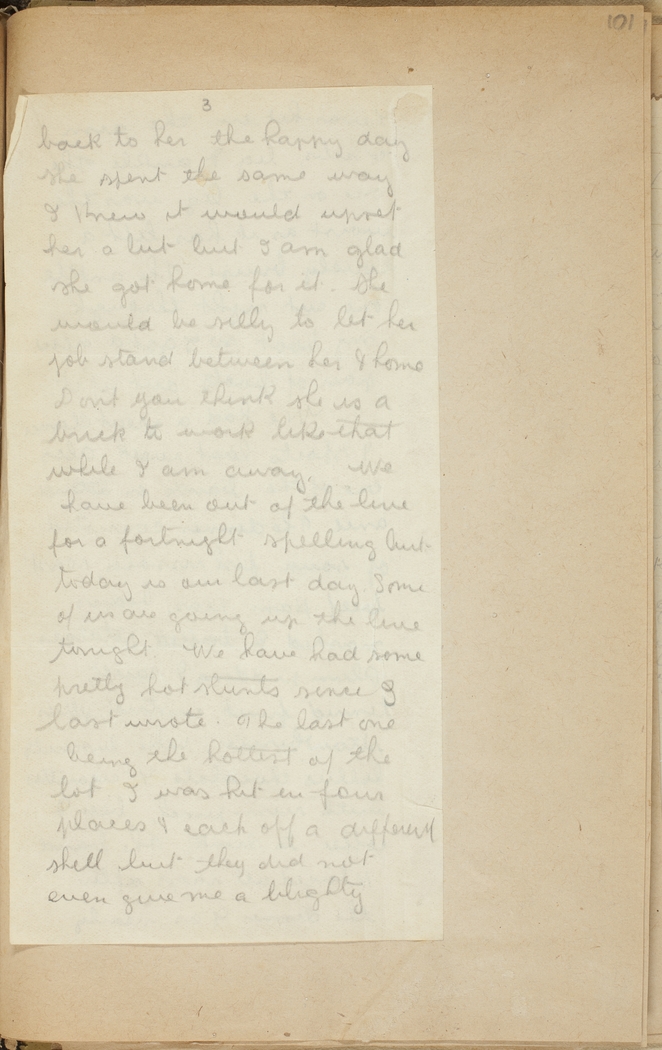 101
3
back to her the happy day
she spent the same way
I knew it would upset
her a bit but I am glad
she got home for it. She
would be silly to let her
job stand between her & home
Dont you think she is a
brick to work like that
while I am away. We
have been out of the line
for a fortnight spelling but
today is our last day. Some
of us are going up the line
tonight. We have had some
pretty hot stunts since I
last wrote. The last one
being the hottest of the
lot I was hit in four
places & each off a different
shell but they did not
even give me a blighty